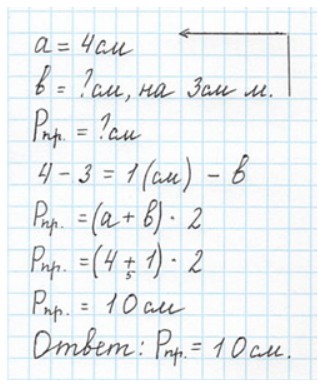 а = 4см
в = ?см, на 3см м.
Pпр. = ?см
4 - 3 = 1 (см) - в
Pпр. = (а + в) · 2
Pпр. = (4 + 1) · 2
5
Pпр. = 10см
Ответ: Pпр. = 10см.